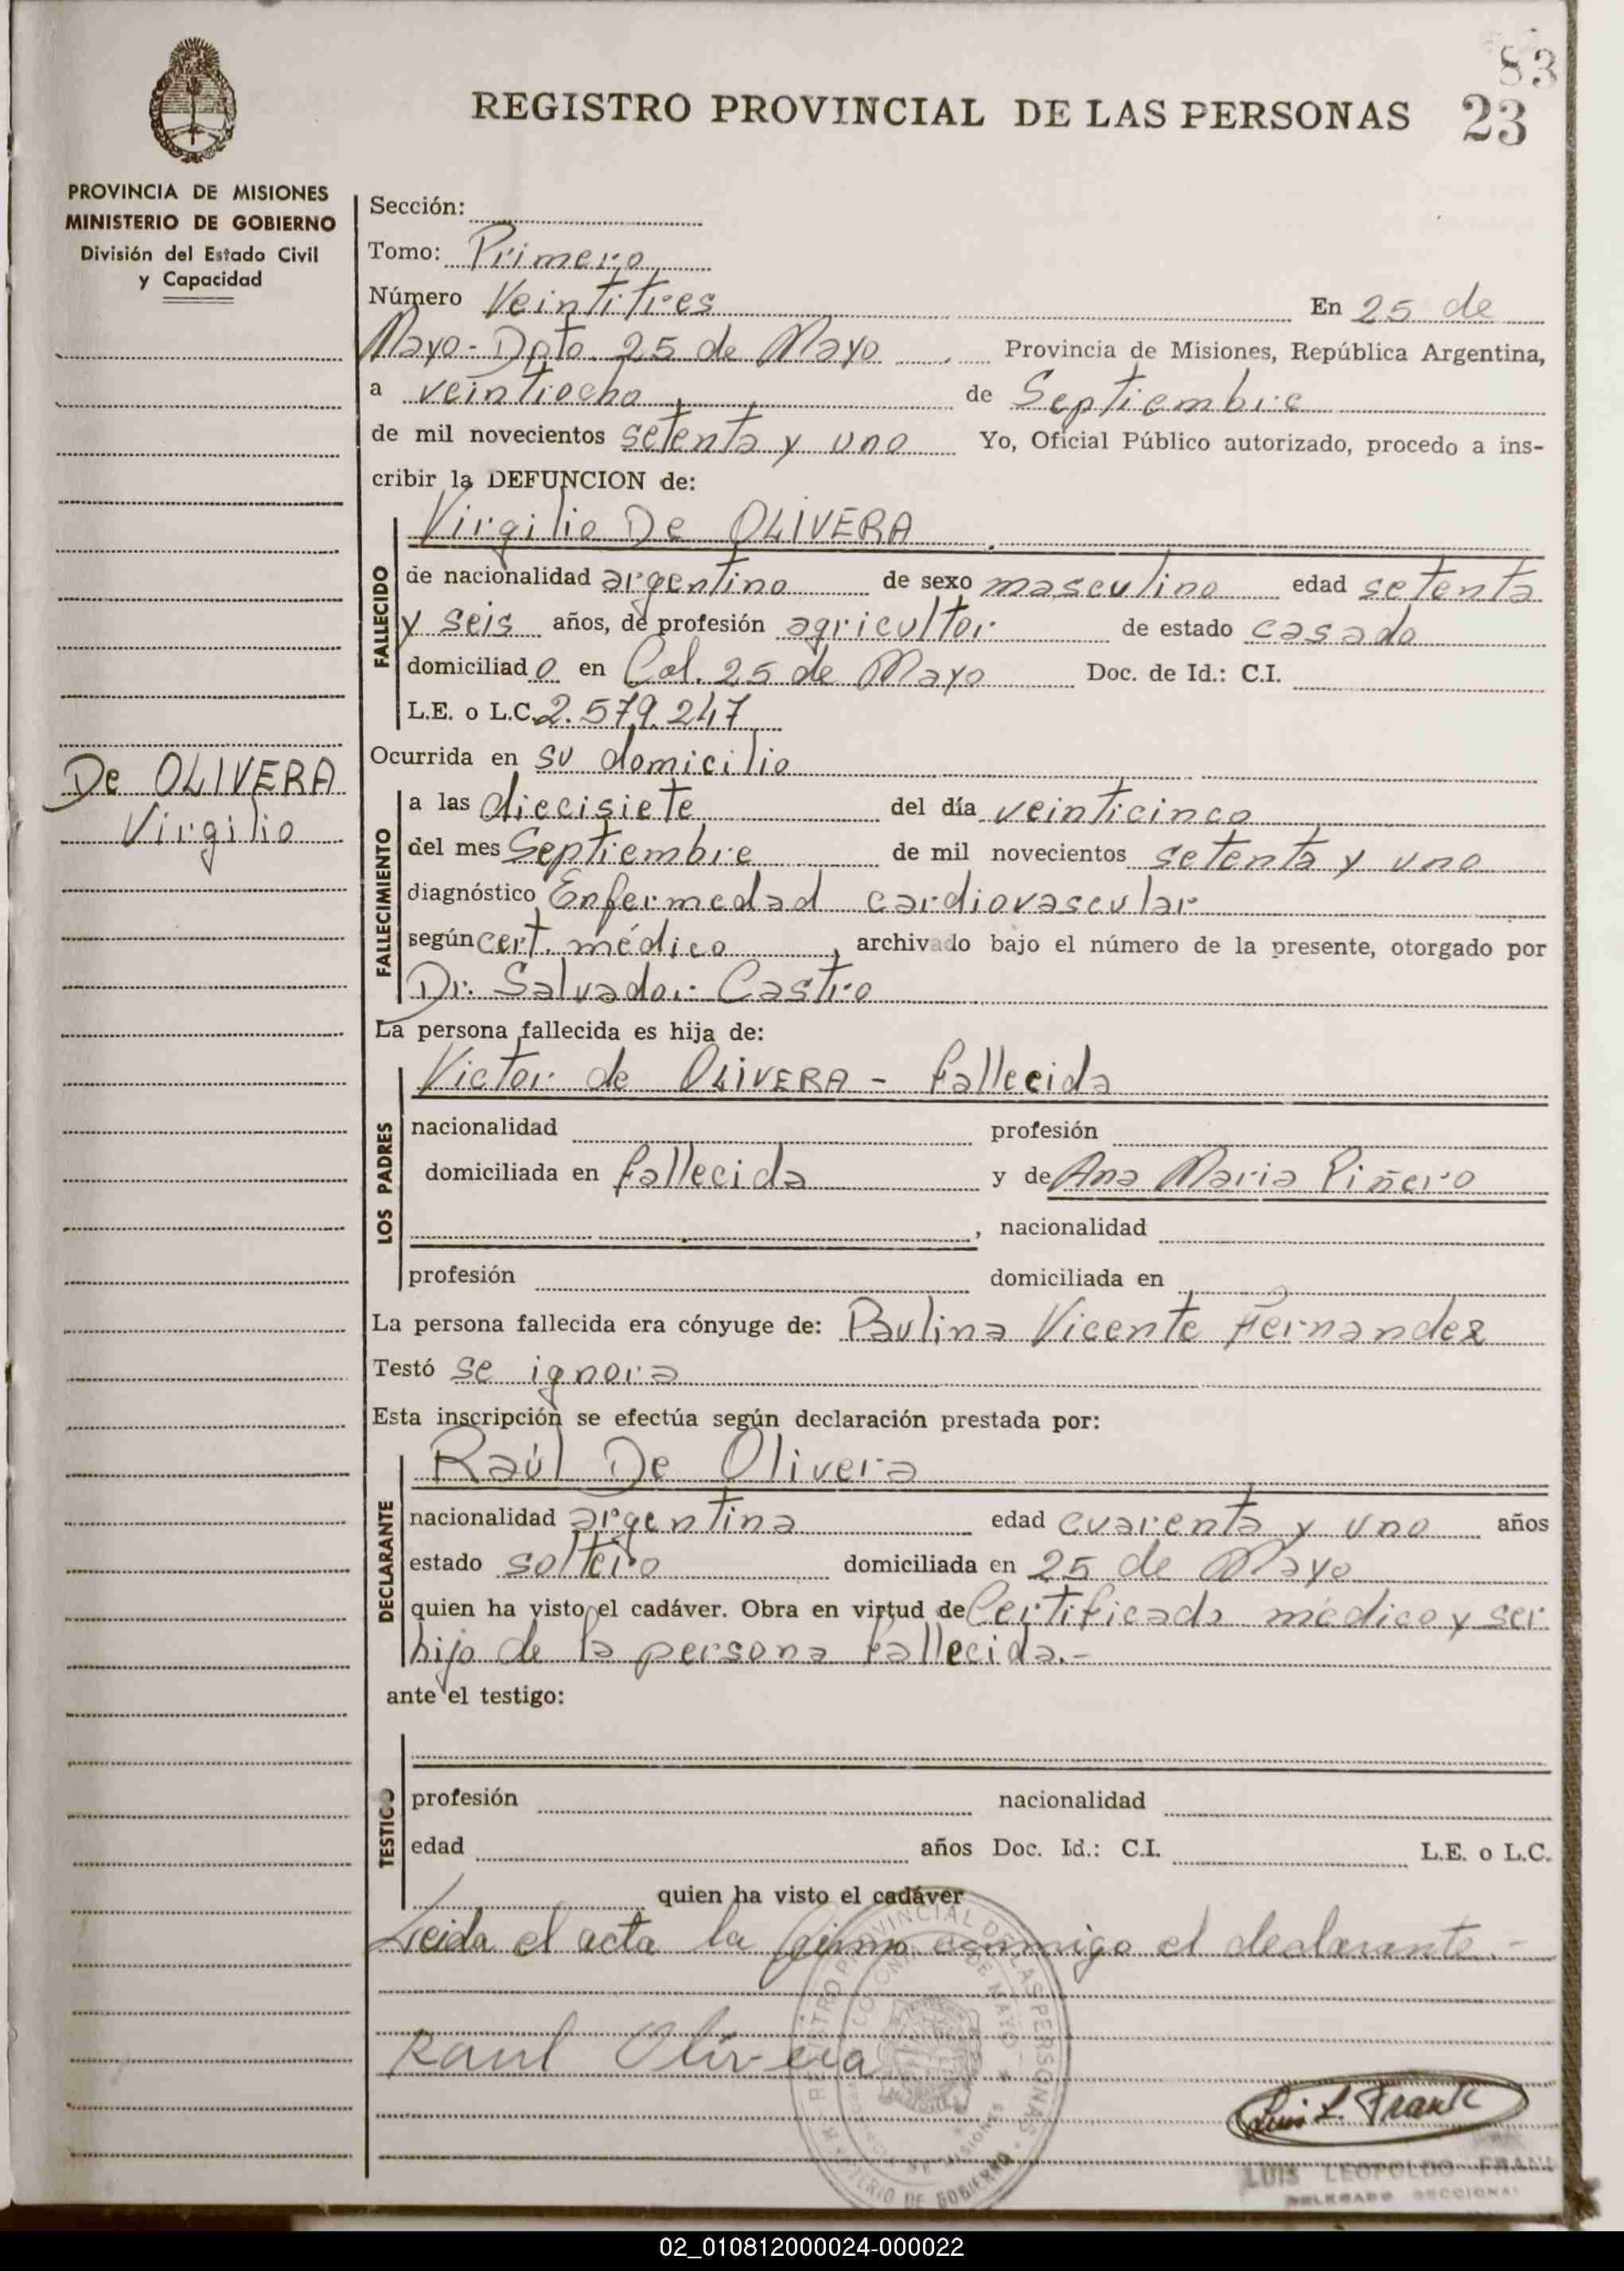 83
REGISTRO PROVINCIAL DE LAS PERSONAS 23
PROVINCIA DE MISIONES
MINISTERIO DE GOBIERNO
División del Estado Civil
y Capacidad
Sección:
Tomo: Primero
Número Veintitres En 25 de
Mayo - Dpto. 25 de Mayo Provincia de Misiones, República Argentina,
a veintiocho de Septiembre
de mil novecientos setenta y uno Yo, Oficial Público autorizado, procedo a ins-
cribir la DEFUNCION de:
Virgilio De OLIVERA
FALLECIDO
de nacionalidad argentino de sexo masculino edad setenta
y seis años, de profesión agricultor de estado casado
domiciliado en Col. 25 de Mayo Doc. de Id.: C.I.
L.E. o L.C. 2.579.247
Ocurrida en su domicilio
De OLIVERA
Virgilio
FALLECIMIENTO
a las diecisiete del día veinticinco
del mes Septiembre de mil novecientos setenta y uno
diagnóstico Enfermedad cardiovascular
según cert. médico, archivado bajo el número de la presente, otorgado por
Dr. Salvador Castro
La persona fallecida es hija de:
LOS PADRES
Victor de OLIVERA - fallecida
nacionalidad profesión
domiciliada en fallecida y de Ana Maria Piñero
, nacionalidad
profesión domiciliada en
La persona fallecida era cónyuge de: Paulina Vicente Fernandez
Testó se ignora
Esta inscripción se efectúa según declaración prestada por:
DECLARANTE
Raúl De Olivera
nacionalidad argentina edad cuarenta y uno años
estado soltero domiciliada en 25 de Mayo
quien ha visto el cadáver. Obra en virtud de Certificado médico y ser
hijo de la persona fallecida.-
ante el testigo:
TESTIGO
profesión nacionalidad
edad años Doc. Id.: C.I. L.E. o L.C.
quien ha visto el cadáver
Leida el acta la firma conmigo el declarante.-
Raul Olivera
REGISTRO PROVINCIAL DE LAS PERSONAS
DE MAYO
MISIONES
MINISTERIO DE GOBIERNO
Luis L. Frank
LUIS LEOPOLDO FRANK
DELEGADO SECCIONAL
02_010812000024-000022